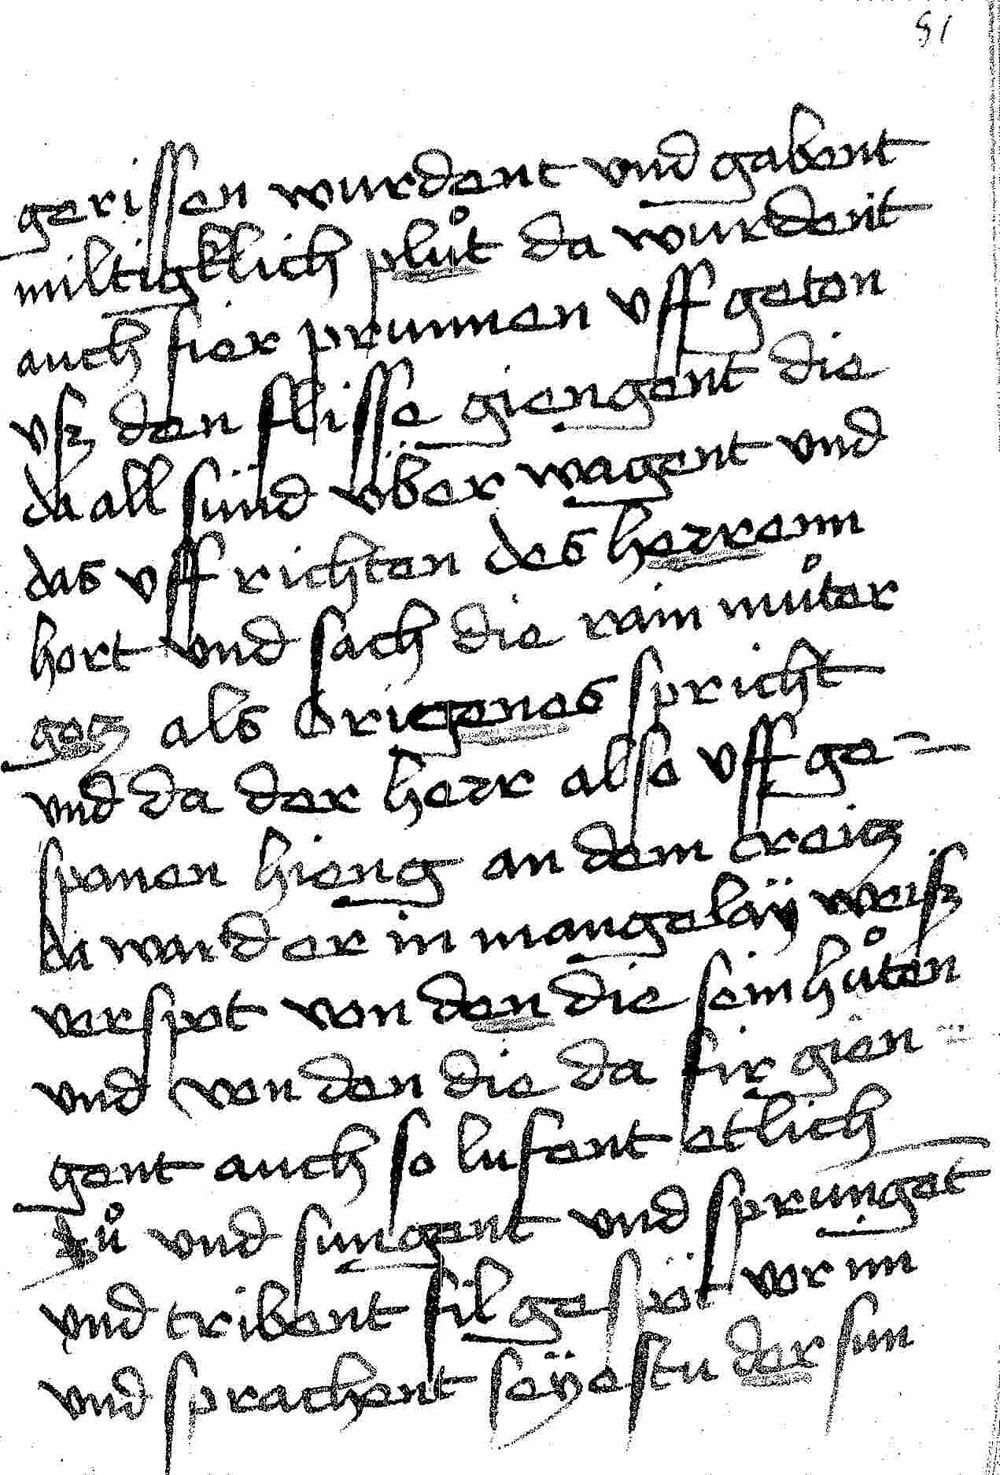 51
gerissen wurdent vnd gabent
miltigklich plůt da wurdent
auch fier prunnen vff geton
vsz den flisse giengent die
da all sünd vber wagent vnd
das vff richten des herrenn
hort vnd sach die rain můter
gotz als Origenes spricht
vnd da der herr also vff ge=
spanen hieng an dem creitz
da ward er in mangelaÿ weisz
verspot von den die sein hůten
vnd von den die da fir gien=
gent auch so lufent etlich
zů vnd sungent vnd sprunget
vnd tribent fil gespöt vor im
vnd sprachent seÿestu der sun